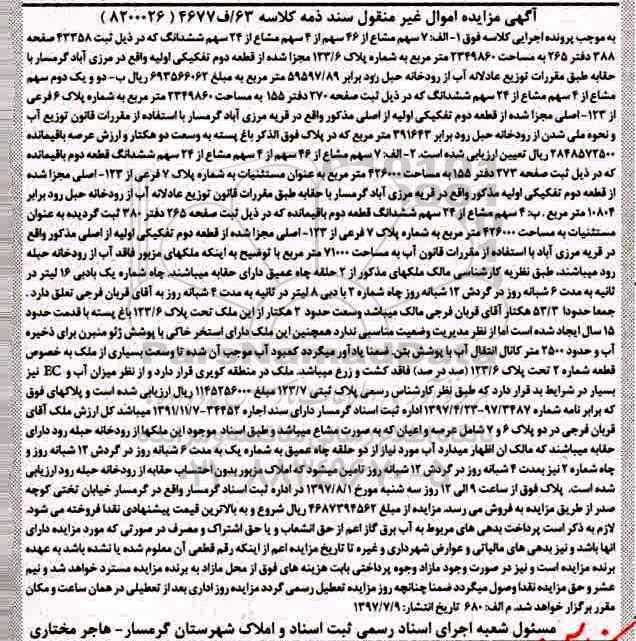 آگهی مزایده اموال غیر منقول سند ذمه کلاسه ۶۳/ف/۴۶۷۷ ( ۸۲۰۰۰۲۶ )
به موجب پرونده اجرایی کلاسه فوق ۱- الف: ۷ سهم مشاع از ۴۶ سهم از ۴ سهم مشاع از ۲۴ سهم ششدانگ که در ذیل ثبت ۴۳۳۵۸ صفحه
۳۸۸ دفتر ۲۶۵ به مساحت ۲۳۴۹۸۶۰ متر مربع به شماره پلاک ۱۲۳/۶ مجزا شده از قطعه دوم تفکیکی اولیه واقع در مرزی آباد گرمسار با
حقابه طبق مقررات توزیع عادلانه آب از رودخانه حبل رود برابر ۵۹۵۹۷/۸۹ متر مربع به مبلغ ۶۹۳۵۶۶۰۶۲ ریال ب- دو و یک دوم سهم
مشاع از ۴ سهم مشاع از ۲۴ سهم ششدانگ که در ذیل ثبت صفحه ۲۷۰ دفتر ۱۵۵ به مساحت ۲۳۴۹۸۶۰ متر مربع به شماره پلاک ۶ فرعی
از ۱۲۳- اصلی مجزا شده از قطعه دوم تفکیکی اولیه از اصلی مذکور واقع در قریه مرزی آباد گرمسار با استفاده از مقررات قانون توزیع آب
و نحوه ملی شدن از رودخانه حبل رود برابر ۳۹۱۶۴۳ متر مربع که در پلاک فوق الذکر باغ پسته به وسعت دو هکتار و ارزش عرصه باقیمانده
۲۸۴۸۵۷۳۵۰۰ ریال تعیین ارزیابی شده است. ۲- الف: ۷ سهم مشاع از ۴۶ سهم از ۴ سهم مشاع از ۲۴ سهم ششدانگ قطعه دوم باقیمانده
که در ذیل ثبت صفحه ۲۷۳ دفتر ۱۵۵ به مساحت ۴۲۶۰۰۰ متر مربع به عنوان مستثنیات به شماره پلاک ۷ فرعی از ۱۲۳- اصلی مجزا شده
از قطعه دوم تفکیکی اولیه مذکور واقع در قریه مرزی آباد گرمسار با حقابه طبق مقررات قانون توزیع عادلانه آب از رودخانه حبل رود برابر
۱۰۸۰۴ متر مربع . ب: ۴ سهم مشاع از ۲۴ سهم ششدانگ قطعه دوم باقیمانده که در ذیل ثبت صفحه ۲۶۵ دفتر ۳۸۰ ثبت گردیده به عنوان
مستثنیات به مساحت ۴۲۶۰۰۰ متر مربع به شماره پلاک ۷ فرعی از ۱۲۳- اصلی مجزا شده از قطعه دوم تفکیکی اولیه از اصلی مذکور واقع
در قریه مرزی آباد با استفاده از مقررات قانون آب به مساحت ۷۱۰۰۰ متر مربع با توضیح به اینکه ملکهای مزبور فاقد آب از رودخانه حبله
رود میباشند، طبق نظریه کارشناسی مالک ملکهای مذکور از ۲ حلقه چاه عمیق دارای حقابه میباشند. چاه شماره یک بادبی ۱۶ لیتر در
ثانیه به مدت ۶ شبانه روز در گردش ۱۲ شبانه روز چاه شماره ۲ با دبی ۸ لیتر در ثانیه به مدت ۴ شبانه روز به آقای قربان فرجی تعلق دارد .
جمعا حدودا ۵۳/۳ هکتار آقای قربان فرجی مالک میباشد وسعت حدود ۲ هکتار از این ملک تحت پلاک ۱۲۳/۶ باغ پسته با قدمت حدود
۱۵ سال ایجاد شده است اما از نظر مدیریت وضعیت مناسبی ندارد همچنین این ملک دارای استخر خاکی با پوشش ژئو ممبرن برای ذخیره
آب و حدود ۲۵۰۰ متر کانال انتقال آب با پوشش بتن. ضمنا یادآور میگردد کمبود آب موجب آن شده تا وسعت بسیاری از ملک به خصوص
قطعه شماره ۲ تحت پلاک ۱۲۳/۶ (صد در صد) فاقد کشت و زرع میباشد. ملک در منطقه کویری قرار دارد و از نظر میزان آب و EC نیز
بسیار در شرایط بد قرار دارد که طبق نظر کارشناس رسمی پلاک ثبتی ۱۲۳/۷ مبلغ ۱۱۴۵۲۵۶۰۰۰ ریال ارزیابی شده است و پلاکهای فوق
که برابر نامه شماره ۹۷/۳۴۸۷-۱۳۹۷/۴/۲۳ اداره ثبت اسناد گرمسار دارای سند اجاره ۳۴۴۵۲-۱۳۹۱/۱۱/۷ میباشد کل ارزش ملک آقای
قربان فرجی در دو پلاک ۶ و ۷ شامل عرصه و اعیان که به صورت مشاع میباشد و طبق اسناد موجود این ملکها از رودخانه حبله رود دارای
حقابه میباشند که مالک ان اظهار میدارد آب مورد نیاز از دو حلقه چاه عمیق به شماره یک به مدت ۶ شبانه روز در گردش ۱۲ شبانه روز و
چاه شماره ۲ نیز بمدت ۴ شبانه روز در گردش ۱۲ شبانه روز تامین میشود که املاک مزبور بدون احتساب حقابه از رودخانه حبله رود ارزیابی
شده است. پلاک فوق از ساعت ۹ الی ۱۲ روز سه شنبه مورخ ۱۳۹۷/۸/۱ در اداره ثبت اسناد گرمسار واقع در گرمسار خیابان تختی کوچه
صدر از طریق مزایده به فروش می رسد. مزایده از مبلغ ۴۶۸۷۳۹۴۵۶۲ ریال شروع و به بالاترین قیمت پیشنهادی نقدا فروخته می شود.
لازم به ذکر است پرداخت بدهی های مربوط به آب برق گاز اعم از حق انشعاب و یا حق اشتراک و مصرف در صورتی که مورد مزایده دارای
انها باشد و نیز بدهی های مالیاتی و عوارض شهرداری و غیره تا تاریخ مزایده اعم از اینکه رقم قطعی آن معلوم شده یا نشده باشد به عهده
برنده مزایده است و نیز در صورت وجود مازاد وجوه پرداختی بابت هزینه های فوق از محل مازاد به برنده مزایده مسترد خواهد شد و نیم
عشر و حق مزایده نقدا وصول میگردد ضمنا چنانچه روز مزایده تعطیل رسمی گردد مزایده روز اداری بعد از تعطیلی در همان ساعت و مکان
مقرر برگزار خواهد شد. م الف: ۶۸۰ تاریخ انتشار: ۱۳۹۷/۷/۹
مسئول شعبه اجرای اسناد رسمی ثبت اسناد و املاک شهرستان گرمسار- هاجر مختاری